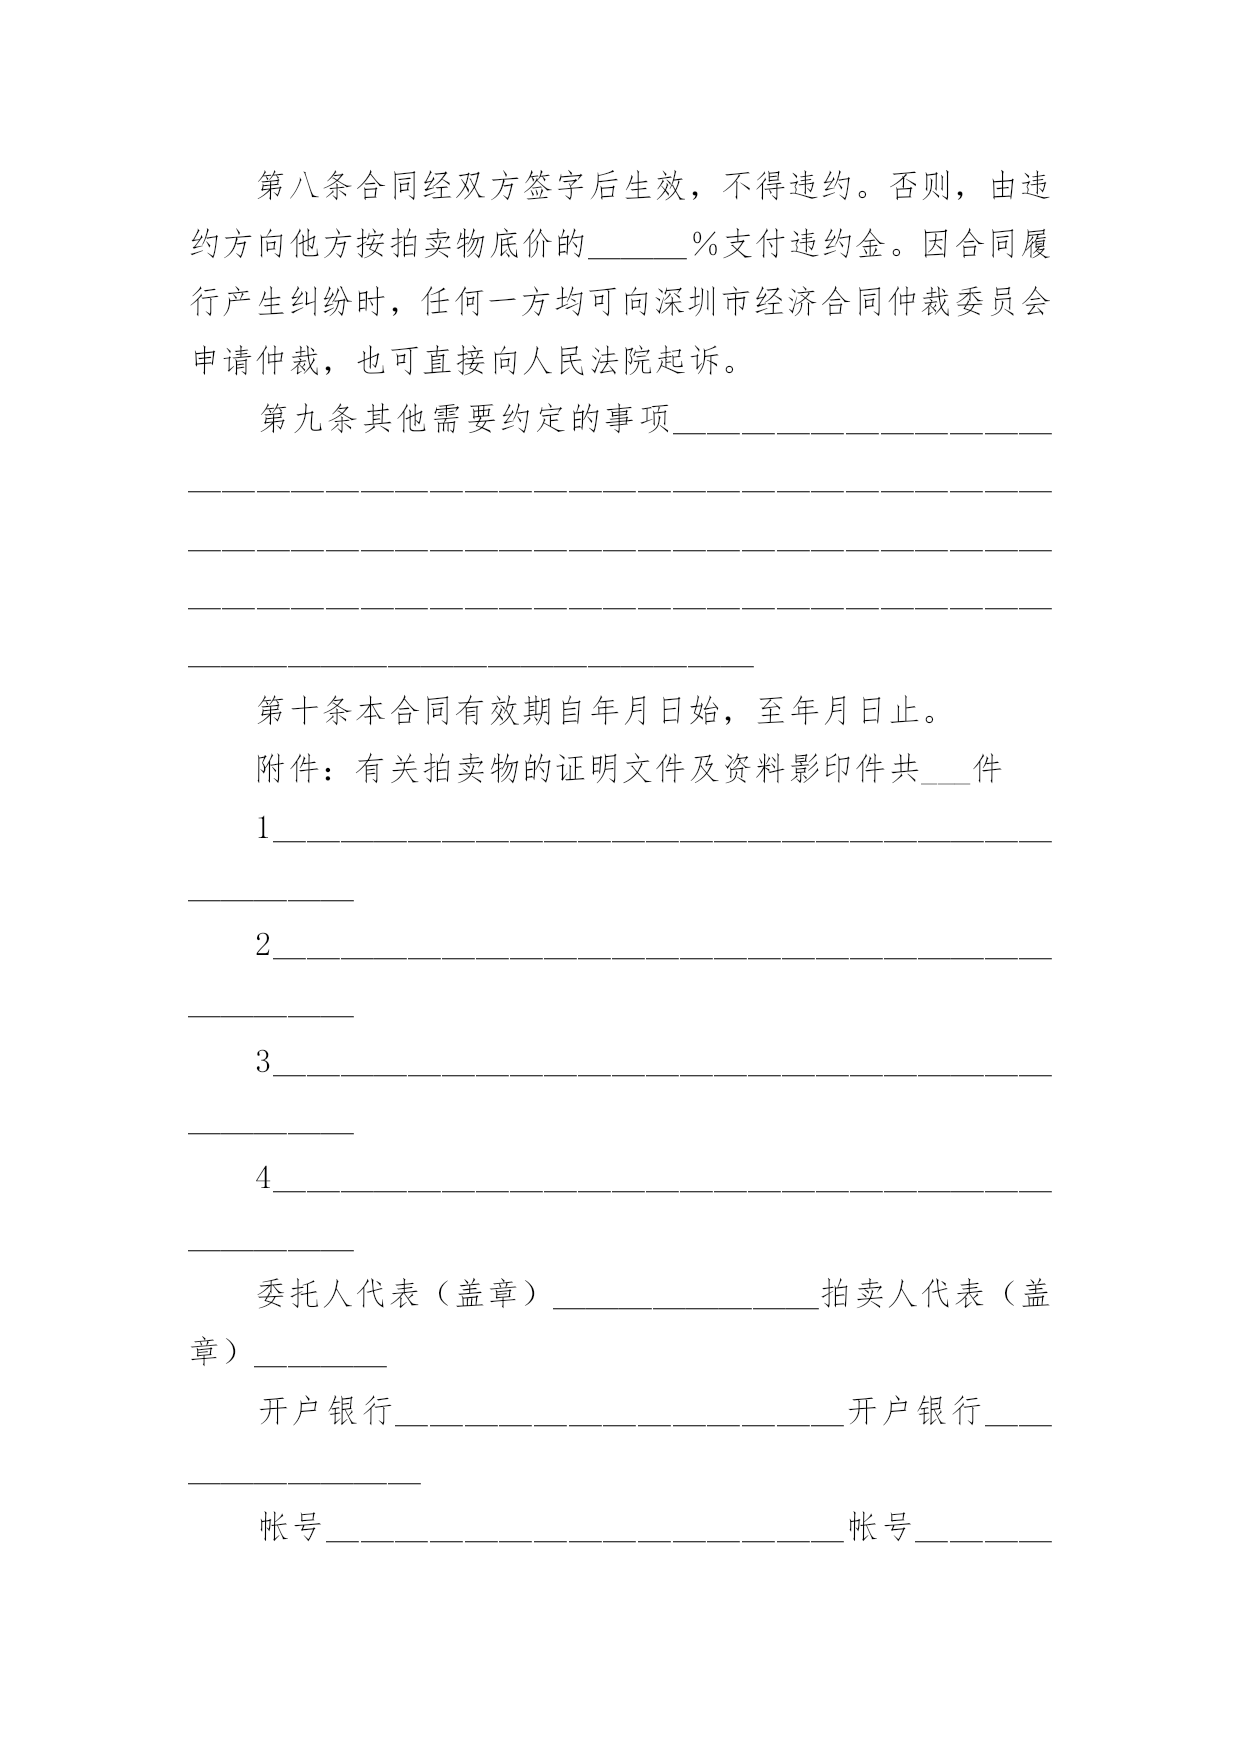 第八条合同经双方签字后生效，不得违约。否则，由违
约方向他方按拍卖物底价的______％支付违约金。因合同履
行产生纠纷时，任何一方均可向深圳市经济合同仲裁委员会
申请仲裁，也可直接向人民法院起诉。
第九条其他需要约定的事项______________________
__________________________________________________
__________________________________________________
__________________________________________________
__________________________________
第十条本合同有效期自年月日始，至年月日止。
附件：有关拍卖物的证明文件及资料影印件共___件
1______________________________________________
__________
2______________________________________________
__________
3______________________________________________
__________
4______________________________________________
__________
委托人代表（盖章）________________拍卖人代表（盖
章）________
开户银行__________________________开户银行____
______________
帐号______________________________帐号________